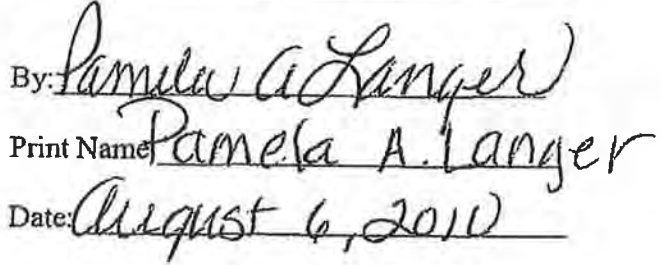 By: Pamela A Langer
Print Name Pamela A. Langer
Date: August 6, 2010